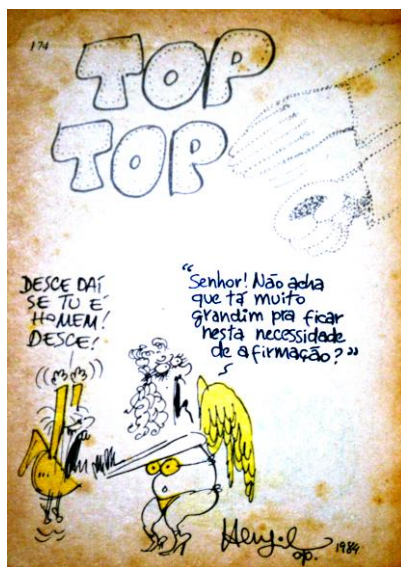 174
TOP
TOP
DESCE DAÍ
SE TU É
HOMEM!
DESCE!
"Senhor! Não acha
que tá muito
grandim pra ficar
nesta necessidade
de afirmação?"
Henfil
op. 1984